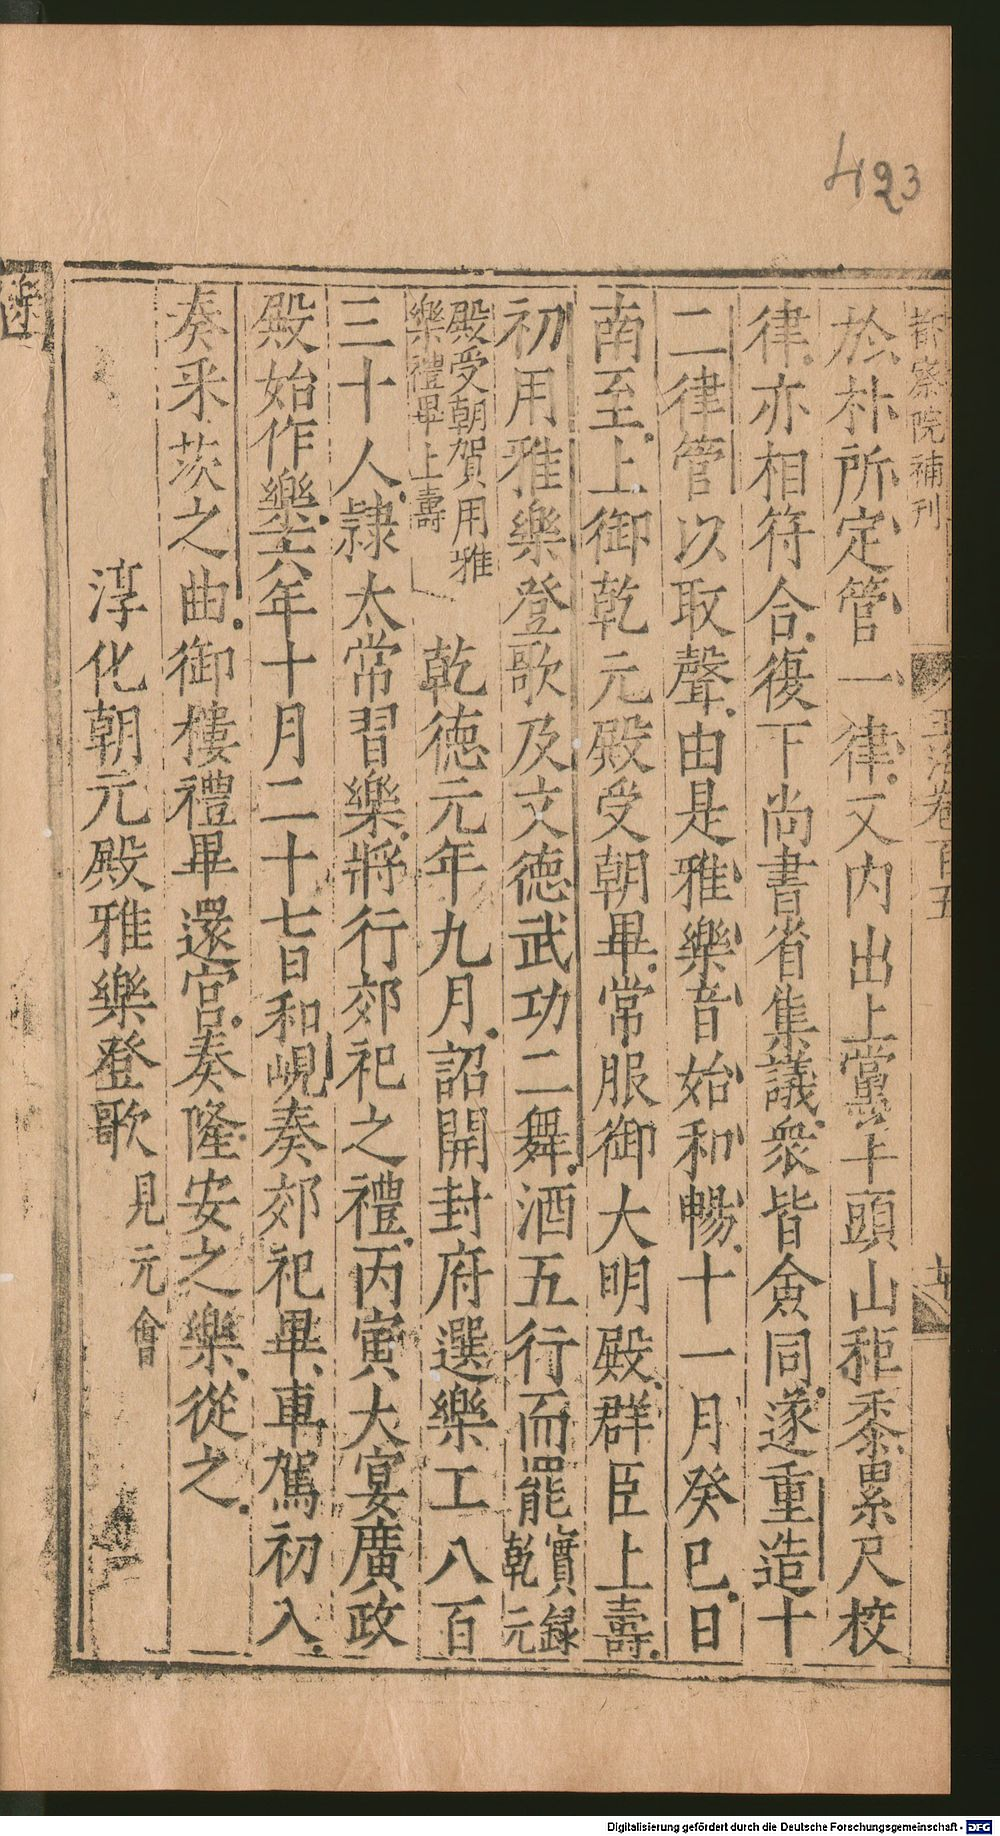 423
都察院補刊
玉海卷百五
於朴所定管一律又内出上黨羊頭山秬黍累尺校
律亦相符合復下尚書省集議衆皆僉同遂重造十
二律管以取聲由是雅樂音始和暢十一月癸巳日
南至上御乾元殿受朝畢常服御大明殿群臣上壽
初用雅樂登歌及文德武功二舞酒五行而罷實録乾元
殿受朝賀用雅樂禮畢上壽 乾德元年九月詔開封府選樂工八百
三十人隷太常習樂將行郊祀之禮丙寅大宴廣政
殿始作樂六年十月二十七日和峴奏郊祀畢車駕初入
奏采茨之曲御樓禮畢還宫奏隆安之樂從之
淳化朝元殿雅樂登歌見元會
Digitalisierung gefördert durch die Deutsche Forschungsgemeinschaft - DFG